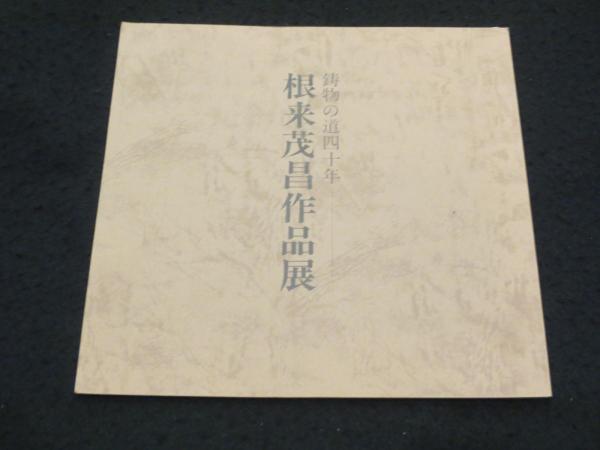 鋳物の道四十年
根来茂昌作品展